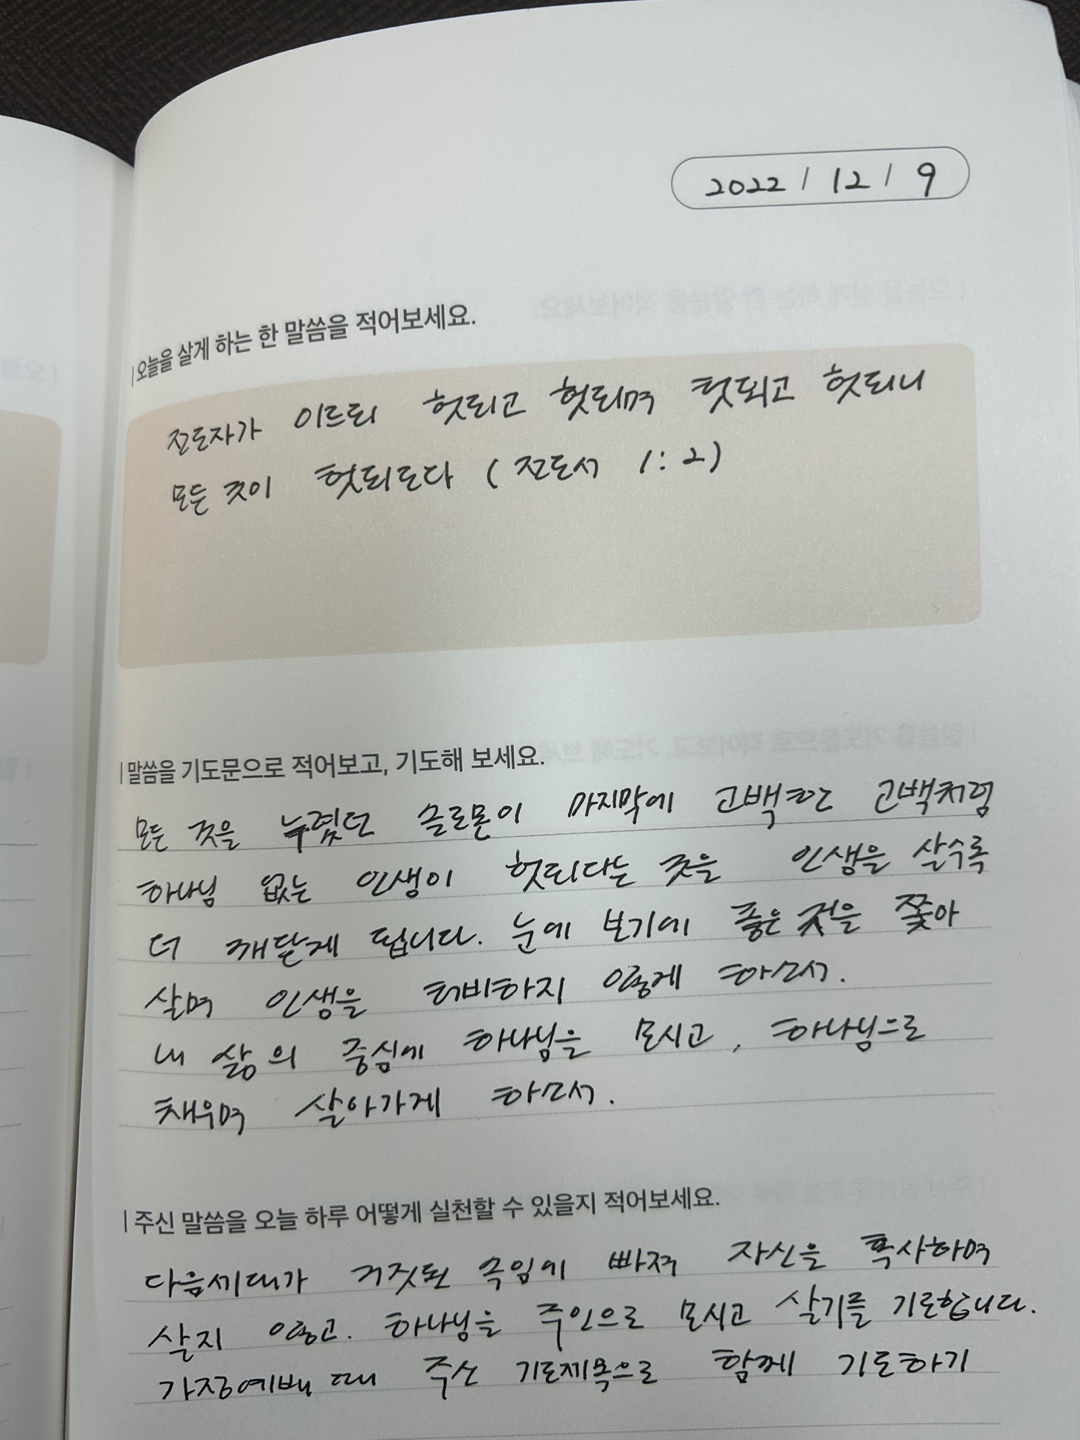 2022 / 12 / 9
오늘을 살게 하는 한 말씀을 적어보세요.
전도자가 이르되 헛되고 헛되며 헛되고 헛되니
모든 것이 헛되도다 (전도서 1:2)
말씀을 기도문으로 적어보고, 기도해 보세요.
모든 것을 누렸던 솔로몬이 마지막에 고백한 고백처럼
하나님 없는 인생이 헛되다는 것을 인생을 살수록
더 깨닫게 됩니다. 눈에 보기에 좋은 것을 쫓아
살며 인생을 허비하지 않게 하소서.
내 삶의 중심에 하나님을 모시고, 하나님으로
채우며 살아가게 하소서.
주신 말씀을 오늘 하루 어떻게 실천할 수 있을지 적어보세요.
다음세대가 거짓된 속임에 빠져 자신을 혹사하며
살지 않고. 하나님을 주인으로 모시고 살기를 기도합니다.
가정예배 때 주신 기도제목으로 함께 기도하기